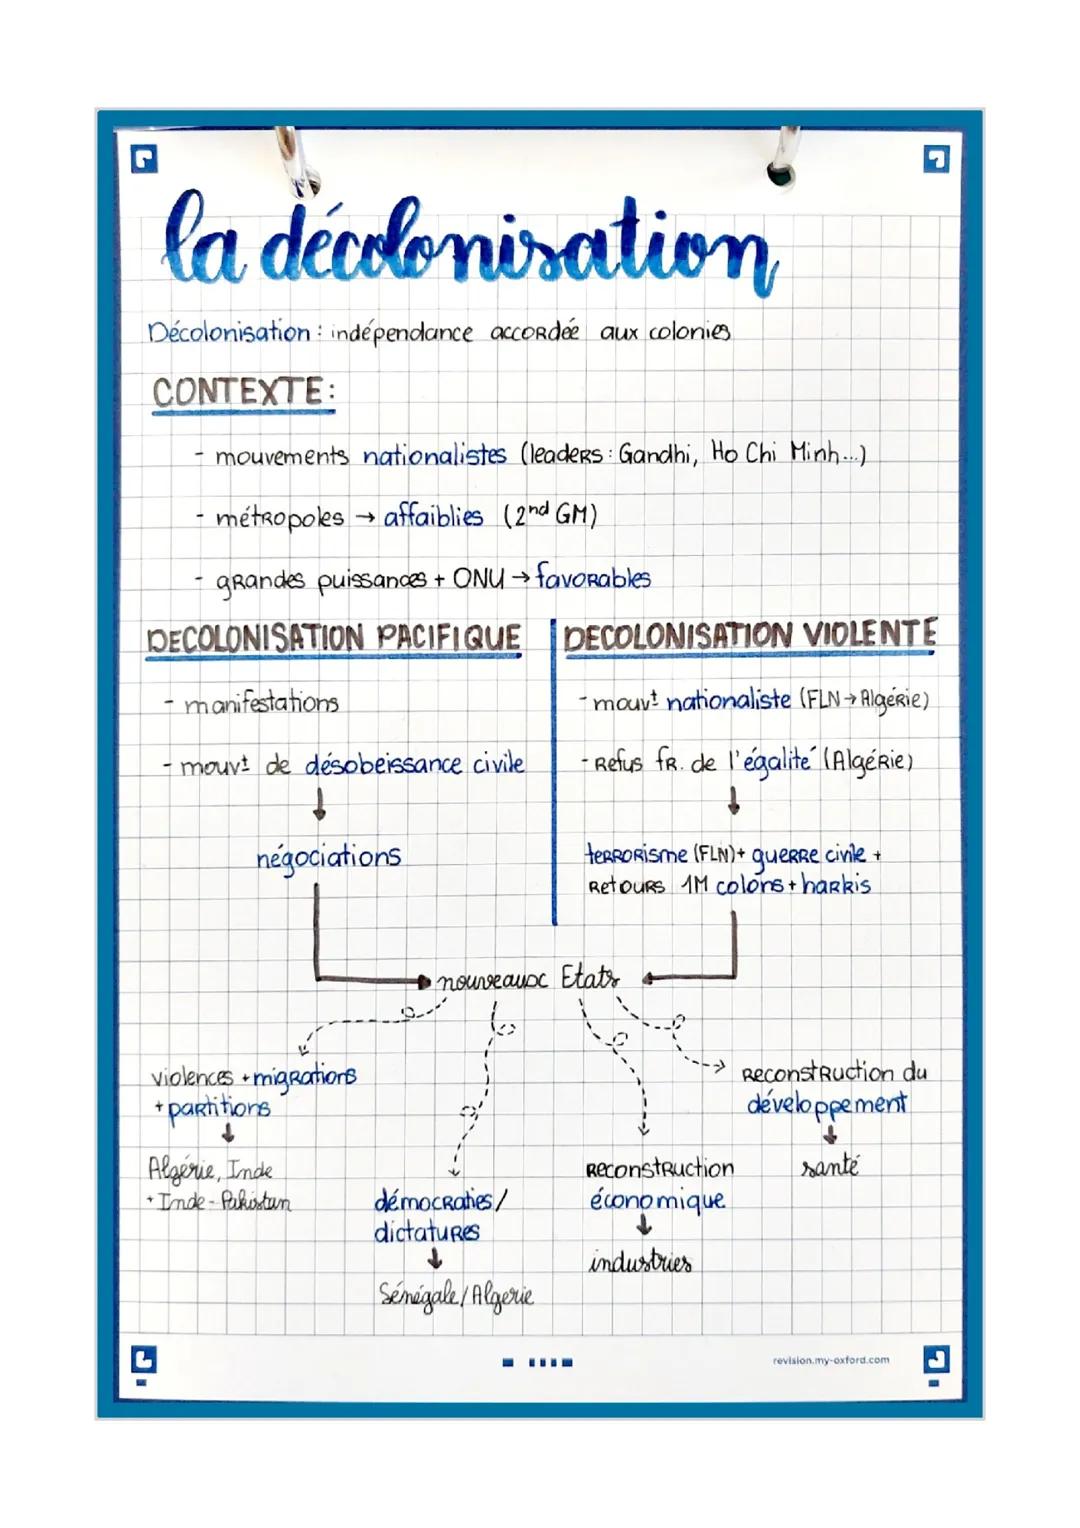 la décolonisation
Décolonisation : indépendance accordée aux colonies
CONTEXTE :
- mouvements nationalistes (leaders : Gandhi, Ho Chi Minh...)
- métropoles → affaiblies (2nd GM)
- grandes puissances + ONU → favorables
DECOLONISATION PACIFIQUE
- manifestations
- mouvt de désobeissance civile
↓
négociations
DECOLONISATION VIOLENTE
- mouvt nationaliste (FLN → Algérie)
- Refus fr. de l'égalité (Algérie)
↓
terrorisme (FLN) + guerre civile +
Retours 1M colons + harkis
nouveaux Etats
violences + migrations
+ partitions
↓
Algérie, Inde
+ Inde - Pakistan
démocraties /
dictatures
↓
Sénégale / Algerie
Reconstruction
économique
↓
industries
Reconstruction du
développement
↓
santé
revision.my-oxford.com